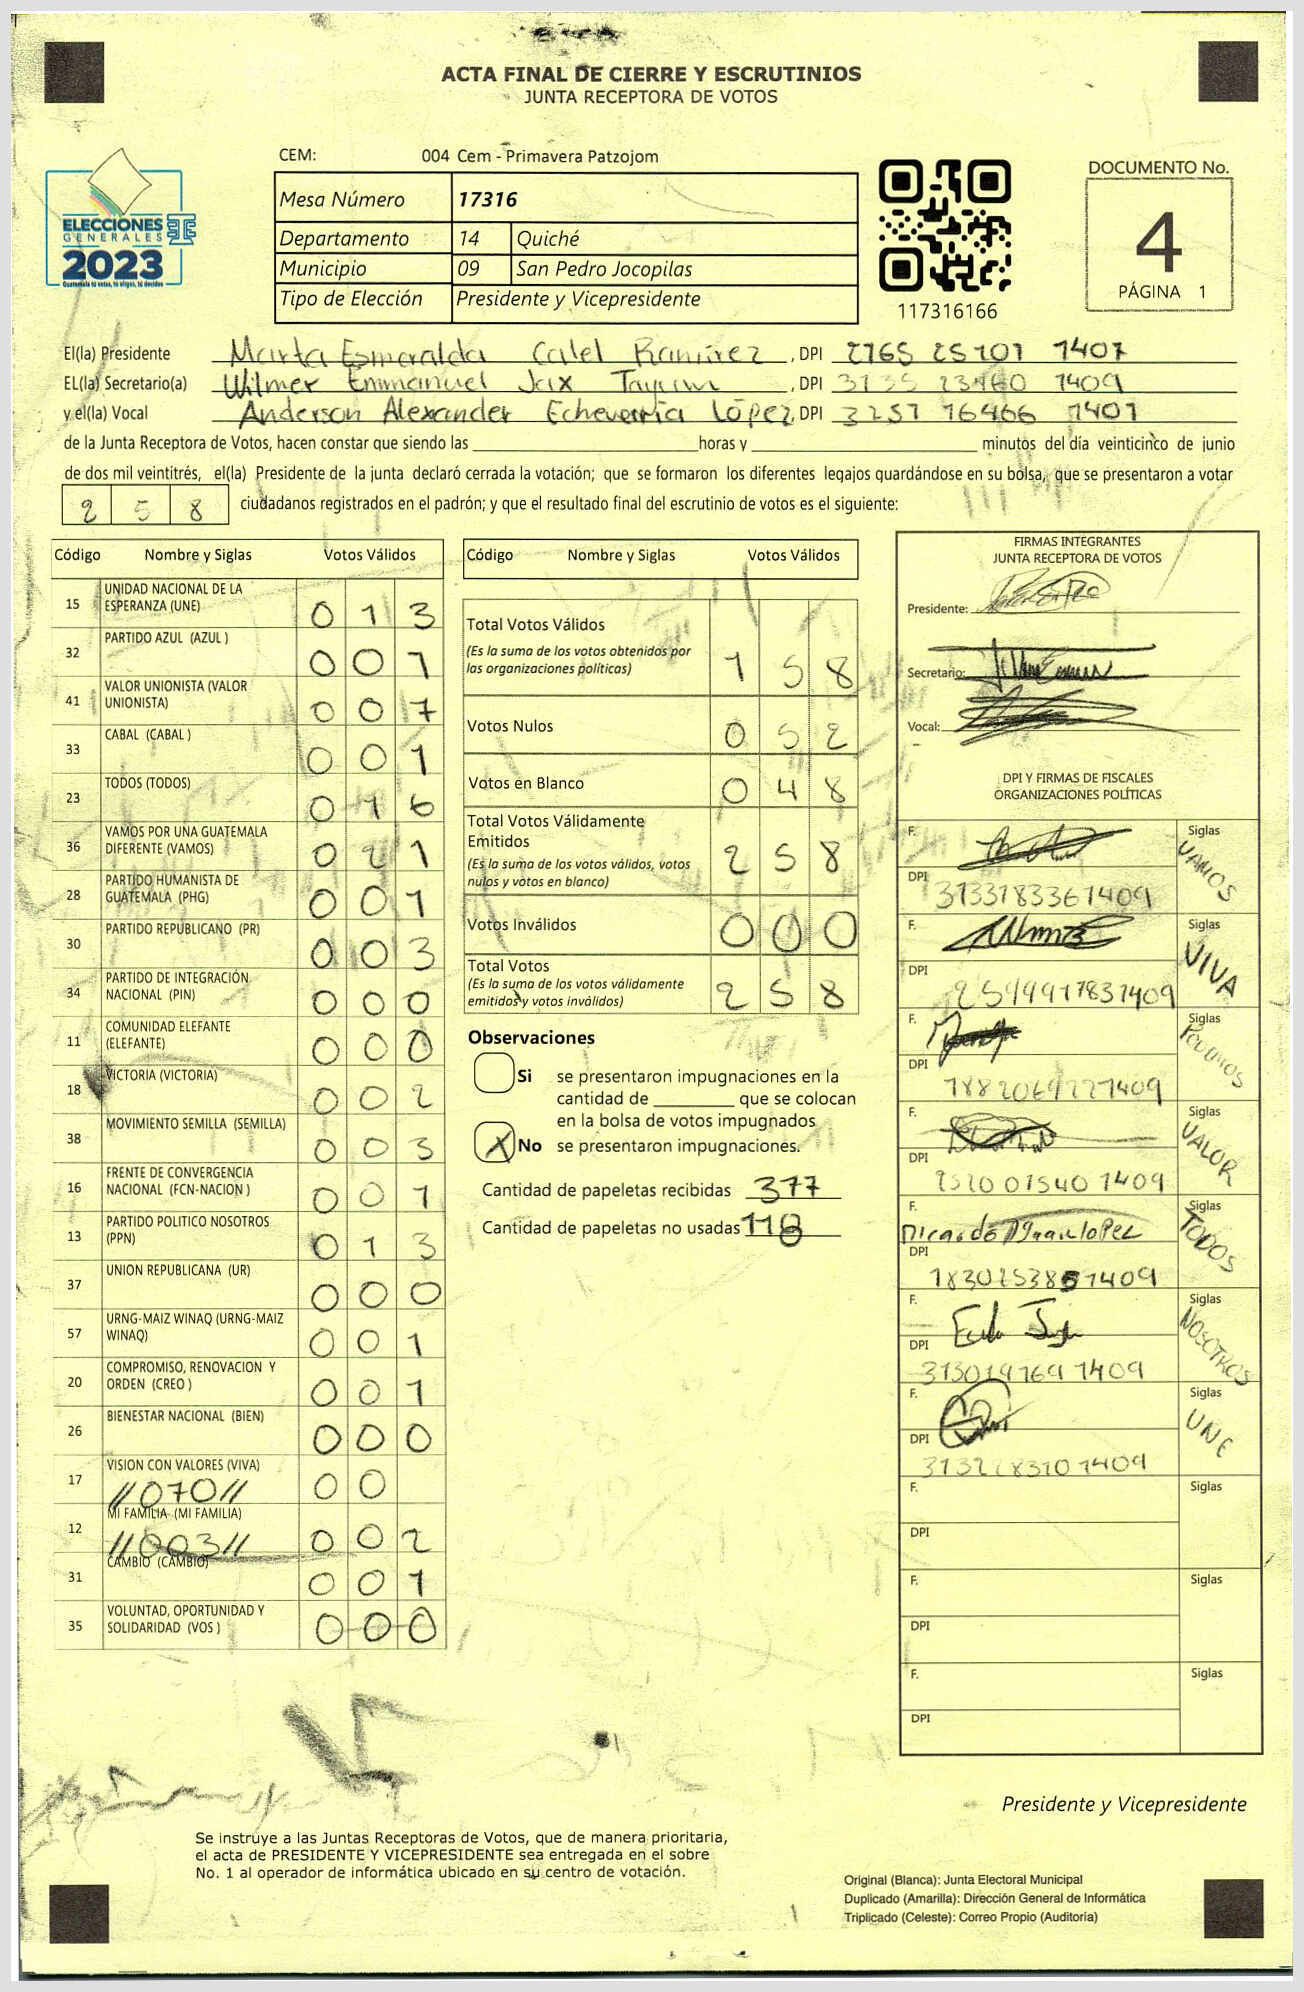 ACTA FINAL DE CIERRE Y ESCRUTINIOS
JUNTA RECEPTORA DE VOTOS
ELECCIONES
GENERALES
2023
Guatemala tú votas, tú eliges, tú decides
CEM: 004 Cem - Primavera Patzojom
Mesa Número 17316
Departamento 14 Quiché
Municipio 09 San Pedro Jocopilas
Tipo de Elección Presidente y Vicepresidente
117316166
DOCUMENTO No.
4
PÁGINA 1
El(la) Presidente Marta Esmeralda Calel Ramírez, DPI 2765 25101 1407
EL(la) Secretario(a) Wilmer Emmanuel Jax Tayum, DPI 3135 23460 1409
y el(la) Vocal Anderson Alexander Echeverría López, DPI 3257 16466 1401
de la Junta Receptora de Votos, hacen constar que siendo las horas y minutos del día veinticinco de junio
de dos mil veintitrés, el(la) Presidente de la junta declaró cerrada la votación; que se formaron los diferentes legajos guardándose en su bolsa, que se presentaron a votar
2 5 8 ciudadanos registrados en el padrón; y que el resultado final del escrutinio de votos es el siguiente:
Código Nombre y Siglas Votos Válidos
15 UNIDAD NACIONAL DE LA ESPERANZA (UNE) 0 1 3
32 PARTIDO AZUL (AZUL ) 0 0 1
41 VALOR UNIONISTA (VALOR UNIONISTA) 0 0 7
33 CABAL (CABAL ) 0 0 1
23 TODOS (TODOS) 0 1 6
36 VAMOS POR UNA GUATEMALA DIFERENTE (VAMOS) 0 2 1
28 PARTIDO HUMANISTA DE GUATEMALA (PHG) 0 0 1
30 PARTIDO REPUBLICANO (PR) 0 0 3
34 PARTIDO DE INTEGRACIÓN NACIONAL (PIN) 0 0 0
11 COMUNIDAD ELEFANTE (ELEFANTE) 0 0 0
18 VICTORIA (VICTORIA) 0 0 2
38 MOVIMIENTO SEMILLA (SEMILLA) 0 0 3
16 FRENTE DE CONVERGENCIA NACIONAL (FCN-NACION ) 0 0 1
13 PARTIDO POLITICO NOSOTROS (PPN) 0 1 3
37 UNION REPUBLICANA (UR) 0 0 0
57 URNG-MAIZ WINAQ (URNG-MAIZ WINAQ) 0 0 1
20 COMPROMISO, RENOVACION Y ORDEN (CREO ) 0 0 1
26 BIENESTAR NACIONAL (BIEN) 0 0 0
17 VISION CON VALORES (VIVA) 0 0
//070//
12 MI FAMILIA (MI FAMILIA) 0 0 2
//003//
31 CAMBIO (CAMBIO) 0 0 1
35 VOLUNTAD, OPORTUNIDAD Y SOLIDARIDAD (VOS ) 0 0 0
Código Nombre y Siglas Votos Válidos
Total Votos Válidos
(Es la suma de los votos obtenidos por
las organizaciones políticas) 1 5 8
Votos Nulos 0 5 2
Votos en Blanco 0 4 8
Total Votos Válidamente
Emitidos
(Es la suma de los votos válidos, votos
nulos y votos en blanco) 2 5 8
Votos Inválidos 0 0 0
Total Votos
(Es la suma de los votos válidamente
emitidos y votos inválidos) 2 5 8
Observaciones
Si se presentaron impugnaciones en la
cantidad de que se colocan
en la bolsa de votos impugnados
X No se presentaron impugnaciones.
Cantidad de papeletas recibidas 377
Cantidad de papeletas no usadas 118
FIRMAS INTEGRANTES
JUNTA RECEPTORA DE VOTOS
Presidente:
Secretario:
Vocal:
DPI Y FIRMAS DE FISCALES
ORGANIZACIONES POLÍTICAS
F. Siglas VAMOS
DPI 3133183361409
F. Siglas VIVA
DPI 2599917831409
F. Siglas Podemos
DPI 1882069221409
F. Siglas VALOR
DPI 2520 01540 1409
F. Ricardo López Siglas TODOS
DPI 1830253851409
F. Siglas NOSOTROS
DPI 3130197691409
F. Siglas UNE
DPI 3132283101409
F. Siglas
DPI
F. Siglas
DPI
F. Siglas
DPI
Presidente y Vicepresidente
Se instruye a las Juntas Receptoras de Votos, que de manera prioritaria,
el acta de PRESIDENTE Y VICEPRESIDENTE sea entregada en el sobre
No. 1 al operador de informática ubicado en su centro de votación.
Original (Blanca): Junta Electoral Municipal
Duplicado (Amarilla): Dirección General de Informática
Triplicado (Celeste): Correo Propio (Auditoría)